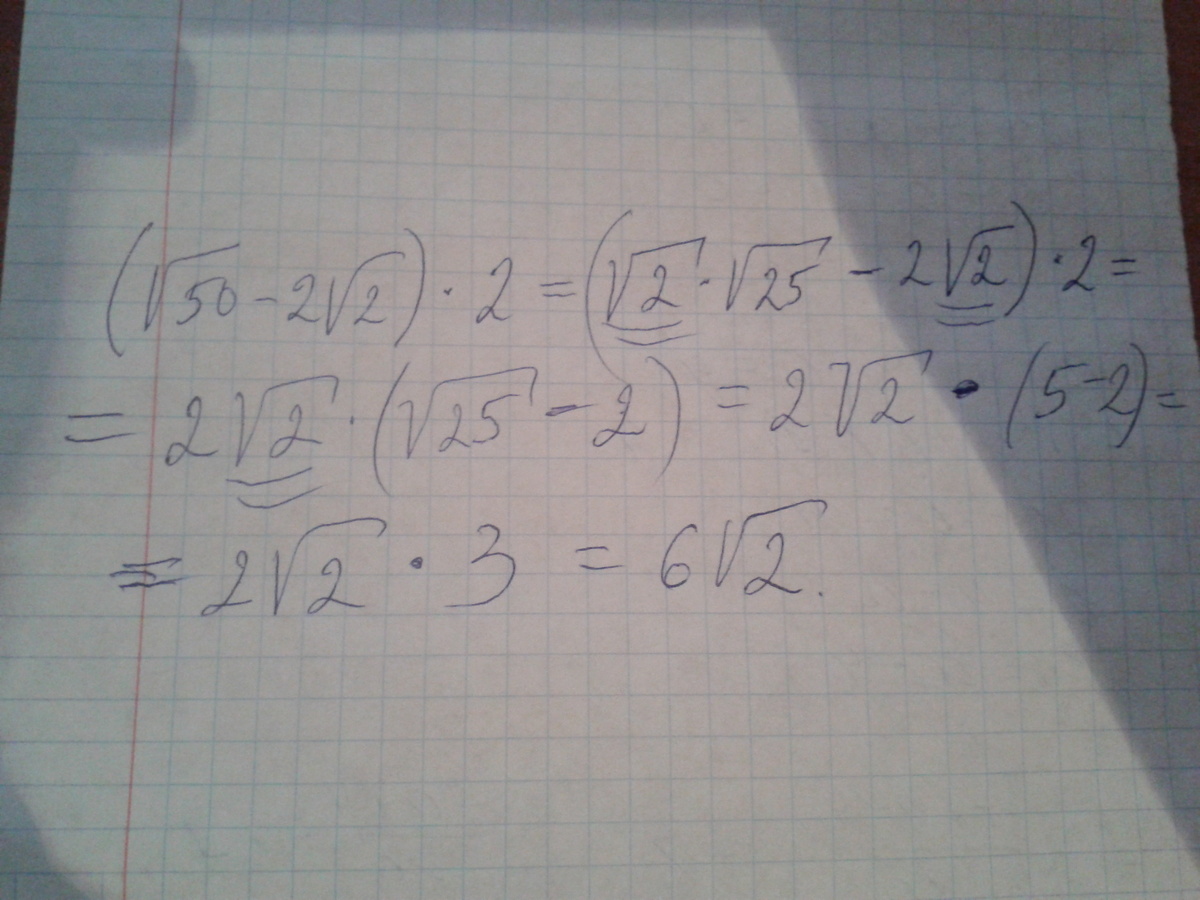 (√50 - 2√2) · 2 = (√2 · √25 - 2√2) · 2 =
= 2√2 · (√25 - 2) = 2√2 · (5-2) =
= 2√2 · 3 = 6√2.